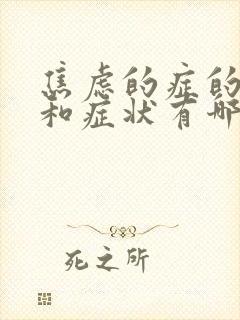 焦虑的症的
和症状有哪
死之所